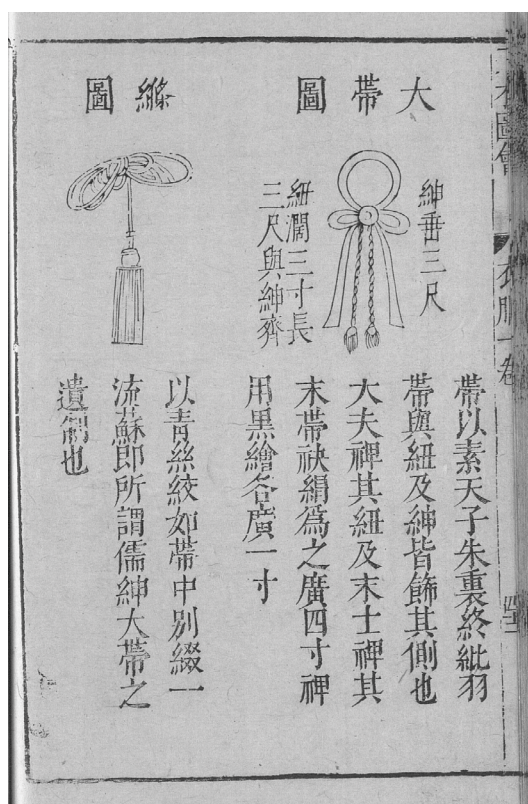 三才圖會
衣服一卷
大帶圖
紳垂三尺
紐濶三寸長
三尺與紳齊
帶以素天子朱裏終紕羽
帶與紐及紳皆飾其側也
大夫裨其紐及末士裨其
末帶袂絹為之廣四寸裨
用黒繒各廣一寸
絛圖
以青絲絞如帶中別綴一
流蘇即所謂儒紳大帶之
遺制也